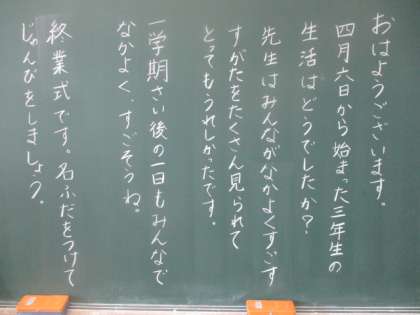 おはようございます。
四月六日から始まった三年生の
生活はどうでしたか?
先生はみんながなかよくすごす
すがたをたくさん見られて
とってもうれしかったです。
一学期さい後の一日もみんなで
なかよく、すごそうね。
終業式です。名ふだをつけて
じゅんびをしましょう。